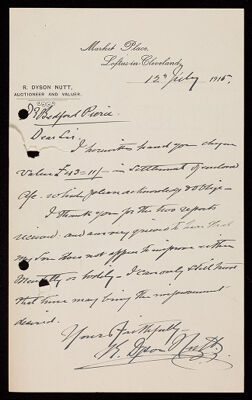 Market Place,
Loftus-in-Cleveland,
12th July 1915.
R. DYSON NUTT,
AUCTIONEER AND VALUER.
Dr Bedford Pierce.
Dear Sir.
I herewith hand you cheque
value £43=11/- in settlement of enclosed
a/c. which please acknowledge & oblige -
I thank you for the two reports
received: and am very grieved to hear that
my Son does not appear to improve either
Mentally or bodily - I can only still trust
that time may bring the improvement
desired.
Yours Faithfully -
R. Dyson Nutt.